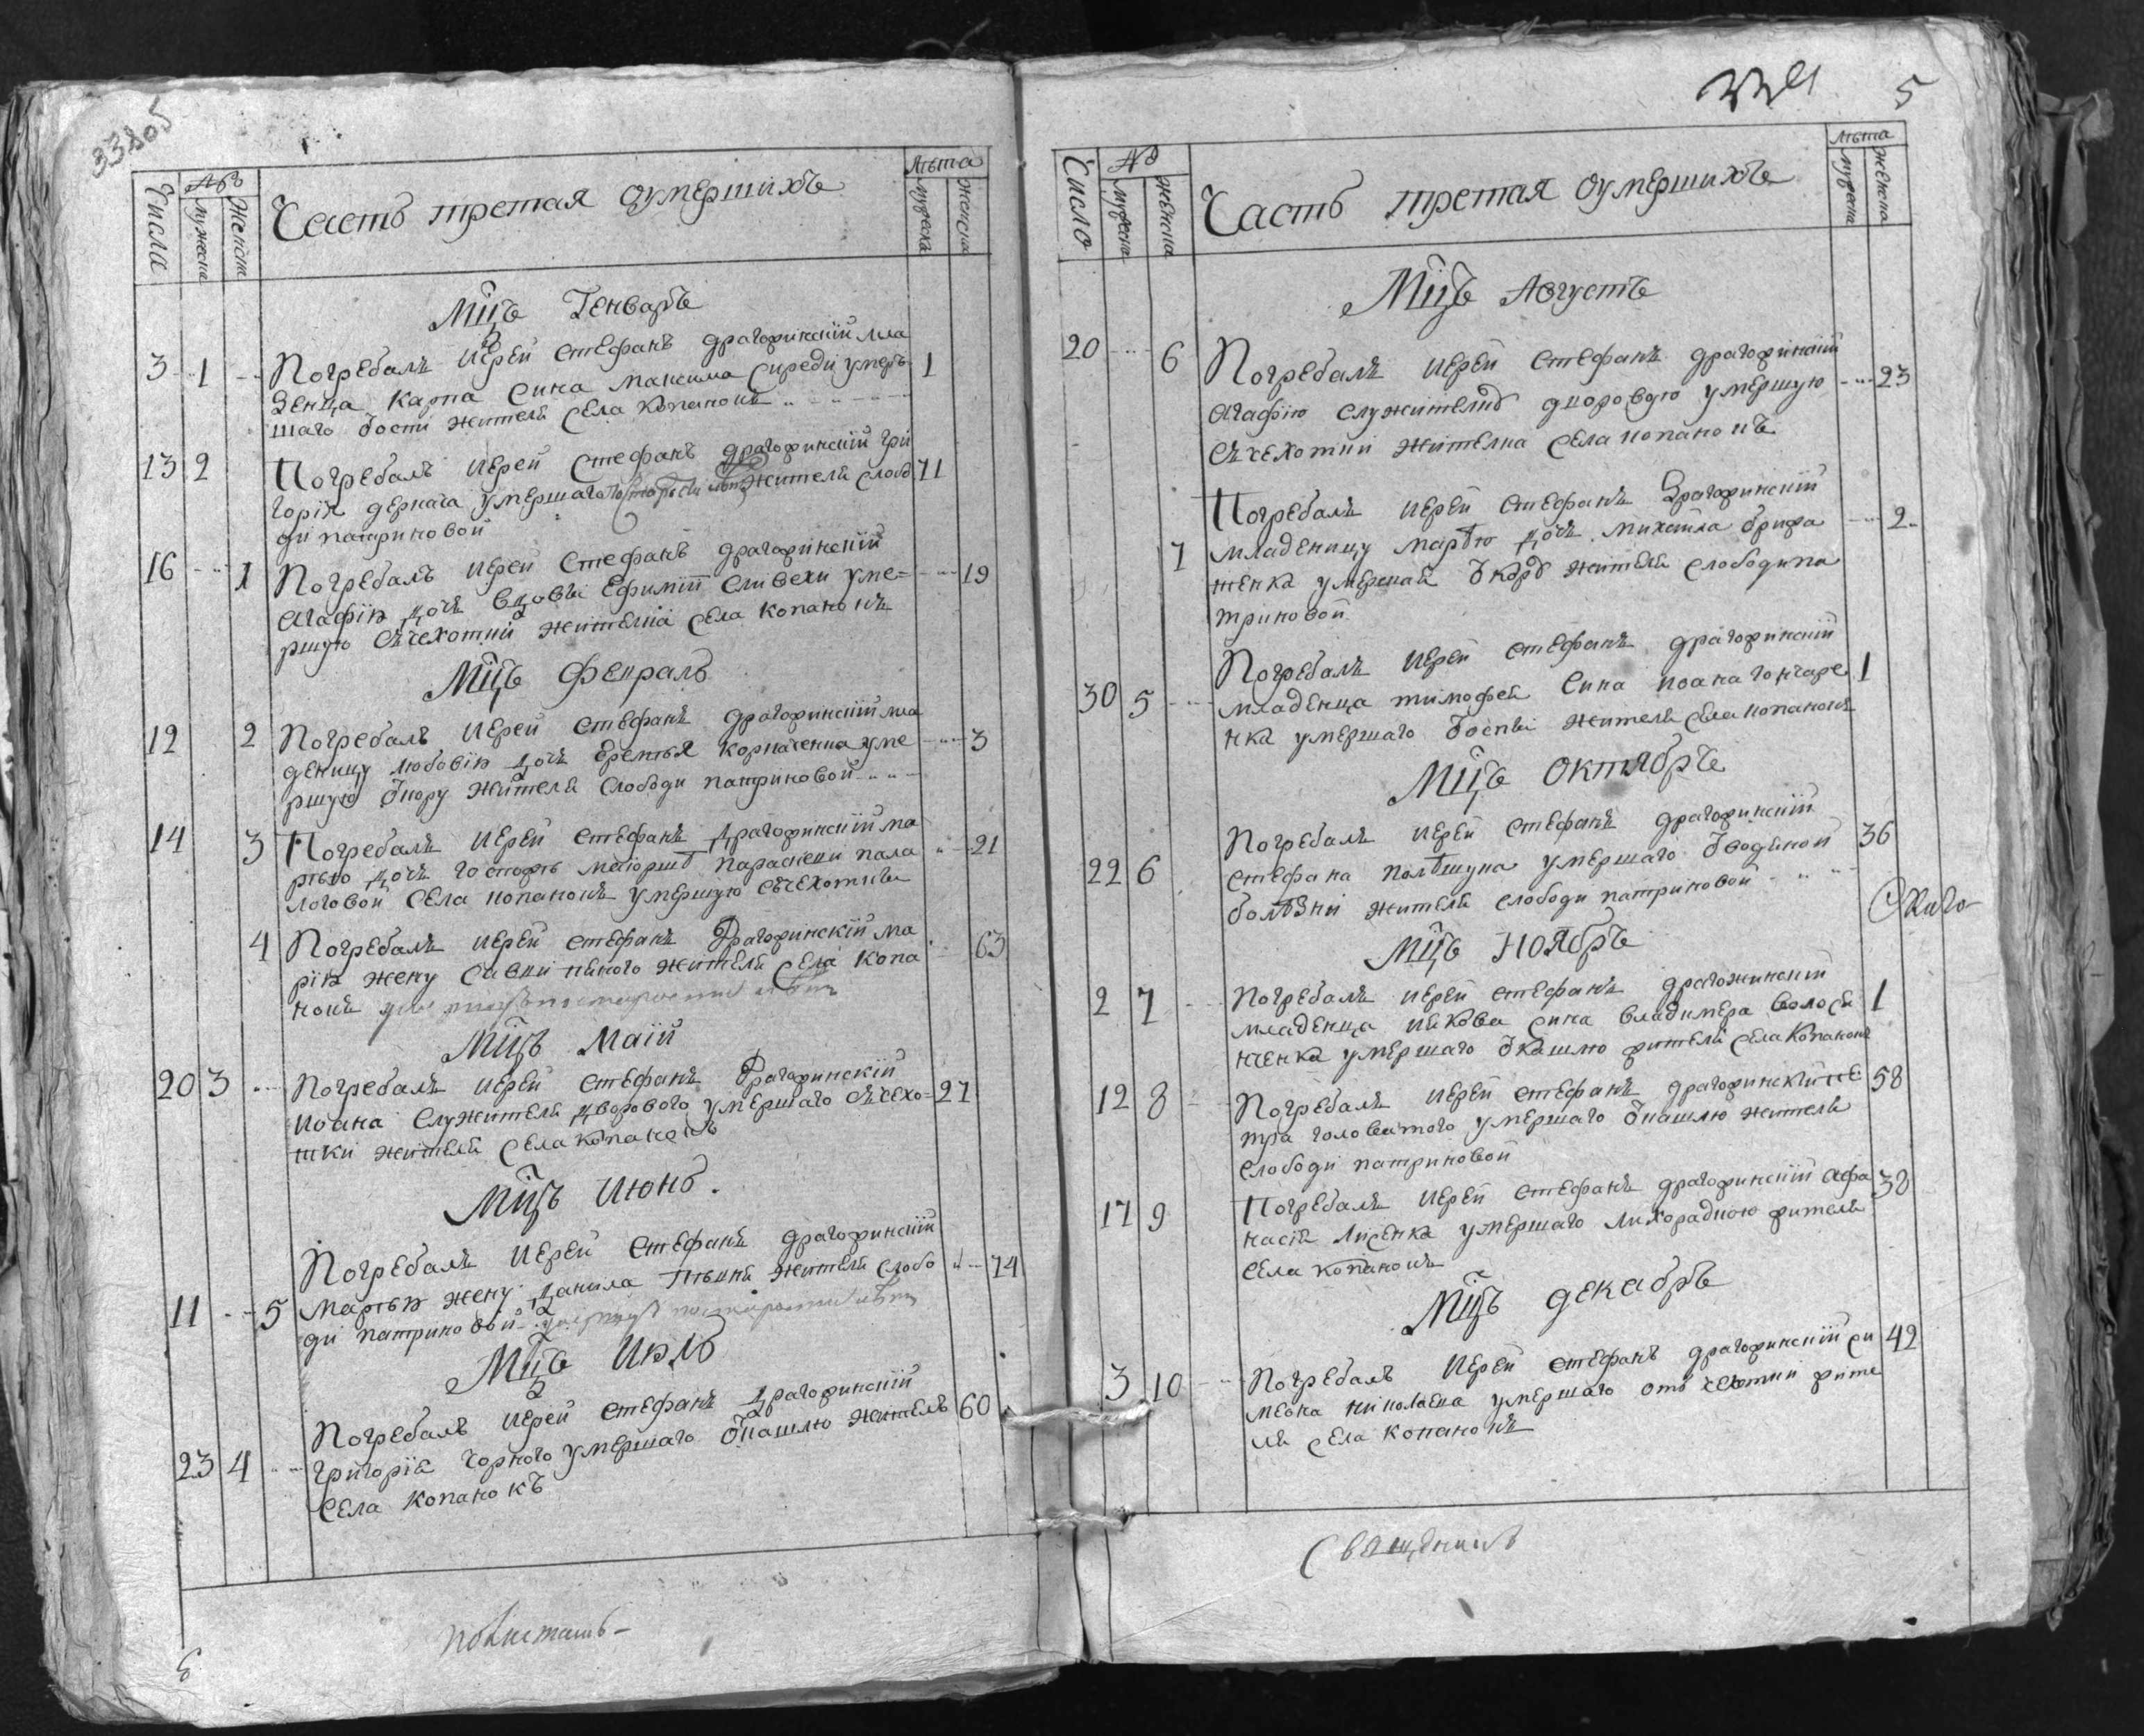 Числа
мужеска
женска
Часть третая оумершихъ
лѣта
мужеска
женска
Мцъ Генваръ
3 1 Погребалъ иерей стефанъ драгожинскій мла
денца карпа сина максима середи умеръ 1
шаго ѿости жителя села копанокъ
13 2 Погребалъ иерей стефанъ драгожинскій гри 71
горія дернача умершаго жителя слобо
ди патриковой
16 1 Погребалъ иерей стефанъ драгожинскій
агафію дочь вдови ефиміи сливехи уме= 19
ршую ѿсехотки жителка села копанокъ
Мцъ февралъ
12 2 Погребалъ иерей стефанъ драгожинскій мла
деницу любовію дочь еремѣя корначенка уме 3
ршую ѿкору жителя слободи патриковой
14 3 Погребалъ иерей стефанъ драгожинскій ма
рѣю дочь госпожѣ маіоршѣ параскеви пала 21
логовой села копанокъ умершую сѣсехотки
4 Погребалъ иерей стефанъ драгожинскій ма
рію жену савки жителя села копа 63
нокъ
Мцъ маій
20 3 Погребалъ иерей стефанъ драгожинскій
иоана служителя дворового умершаго сѣсехо= 27
тки жителя села копанокъ
Мцъ июнь
Погребалъ иерей стефанъ драгожинскій
11 5 марѣю жену данила жителя слобо 74
ди патриковой
Мцъ июль
Погребалъ иерей стефанъ драгожинскій
23 4 григорія чорного умершаго ѿкашлю жителъ 60
села копанокъ
5
Число
мужеска
женска
Часть третая оумершихъ
лѣта
мужеска
женска
Мцъ августъ
20 6 Погребалъ иерей стефанъ драгожинскій
агафію служителку дворовую умершую 23
сѣсехотки жителка села копанокъ
Погребалъ иерей стефанъ драгожинскій
7 младеницу марѳю дочь михаила 2
женка умершая ѿкору жителя слободи па
триковой
Погребалъ иерей стефанъ драгожинскій
30 5 младенца тимофея сина иоана гончаре 1
нка умершаго ѿоспы жителя села копанокъ
Мцъ октябръ
Погребалъ иерей стефанъ драгожинскій
22 6 стефана умершаго ѿводяной 36
болѣзни жителя слободи патриковой
Мцъ ноябръ
2 7 Погребалъ иерей стефанъ драгожинскій
младенца иякова сина владимера волоси 1
ченка умершаго ѿкашлю жителя села копанокъ
12 8 Погребалъ иерей стефанъ драгожинскій пе 58
тра головатого умершаго ѿкашлю жителя
слободи патриковой
17 9 Погребалъ иерей стефанъ драгожинскій афа 38
насія лисенка умершаго лихорадкою жителя
села копанокъ
Мцъ декабръ
3 10 Погребалъ иерей стефанъ драгожинскій си 42
меона николаева умершаго отъ сехотки жите
ля села копанокъ
Священникъ